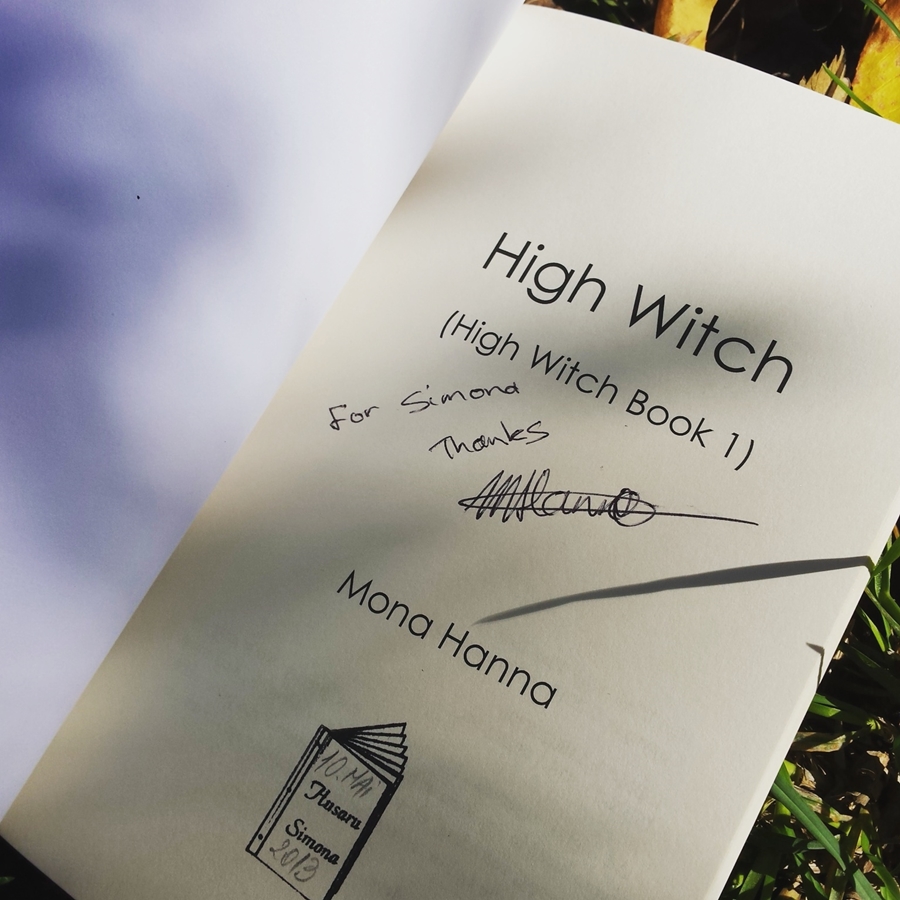 High Witch
(High Witch Book 1)
For Simona
Thanks
MHanna
Mona Hanna
10.MAI
Husaru
Simona
2013